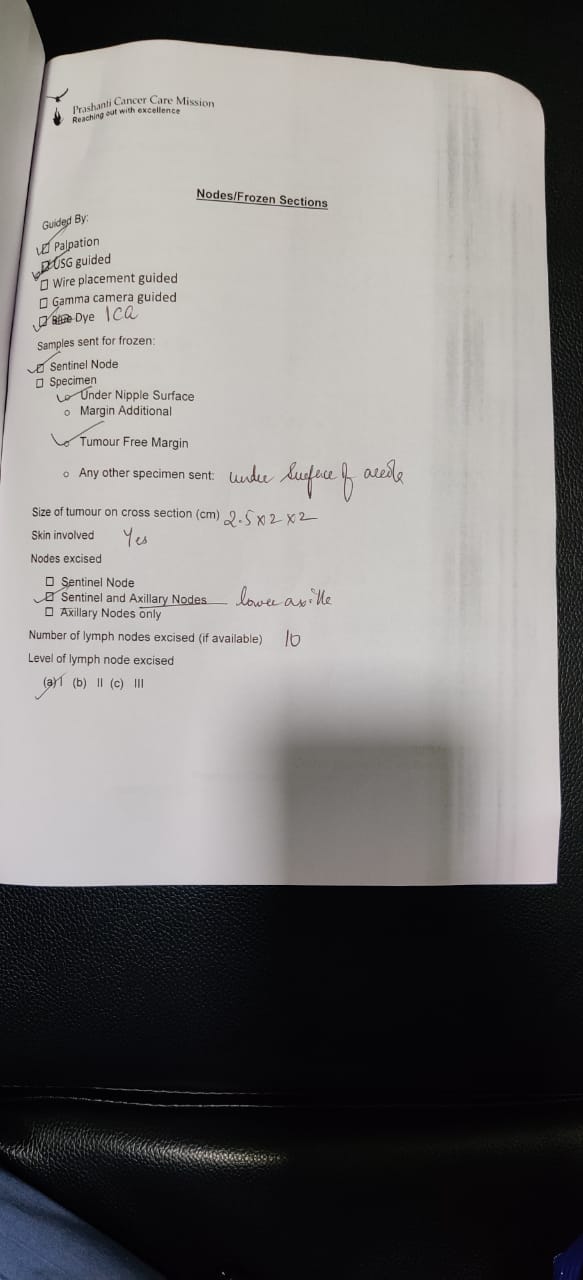 Prashanti Cancer Care Mission
Reaching out with excellence
Nodes/Frozen Sections
Guided By:
☑ Palpation
☑ USG guided
☐ Wire placement guided
☐ Gamma camera guided
☑ Dye ICG
Samples sent for frozen:
☑ Sentinel Node
☐ Specimen
Under Nipple Surface
o Margin Additional
Tumour Free Margin
o Any other specimen sent: under surface of
Size of tumour on cross section (cm) 2.5x2x2
Skin involved Yes
Nodes excised
☐ Sentinel Node
☑ Sentinel and Axillary Nodes lower axilla
☐ Axillary Nodes only
Number of lymph nodes excised (if available) 10
Level of lymph node excised
(a) I (b) II (c) III